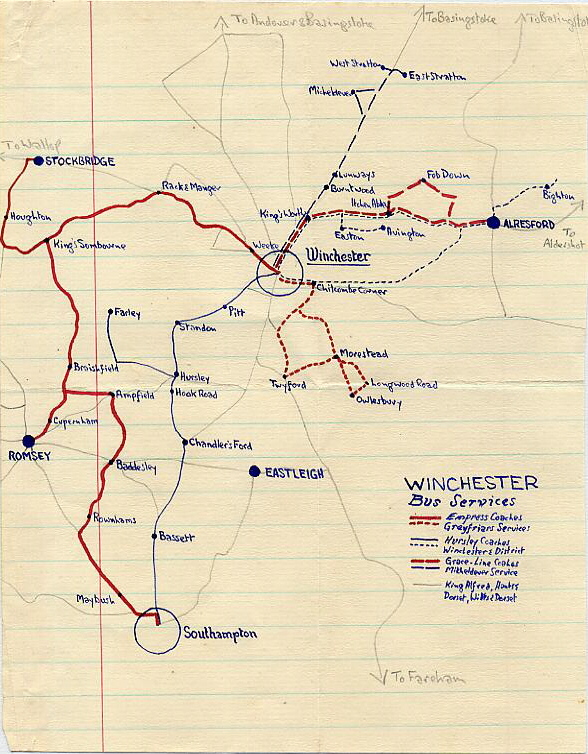 To Andover & Basingstoke
To Basingstoke
To Basingstoke
West Stratton
East Stratton
Micheldever
To Wallop
STOCKBRIDGE
Lunways
Burntwood
Fob Down
Rack & Manger
Itchen Abbas
Bighton
Houghton
King's Worthy
ALRESFORD
King's Sombourne
Weeke
Easton
Avington
To
Aldershot
Winchester
Chilcombe Corner
Farley
Pitt
Standon
Morestead
Braishfield
Hursley
Twyford
Longwood Road
Ampfield
Hook Road
Owlesbury
Cupernham
ROMSEY
Chandler's Ford
Baddesley
EASTLEIGH
WINCHESTER
Bus Services
Empress Coaches
Greyfriars Services
Hursley Coaches
Winchester & District
Grace-Line Coaches
Micheldever Service
King Alfred, Hants &
Dorset, Wilts & Dorset
Rownhams
Bassett
Maybush
Southampton
To Fareham